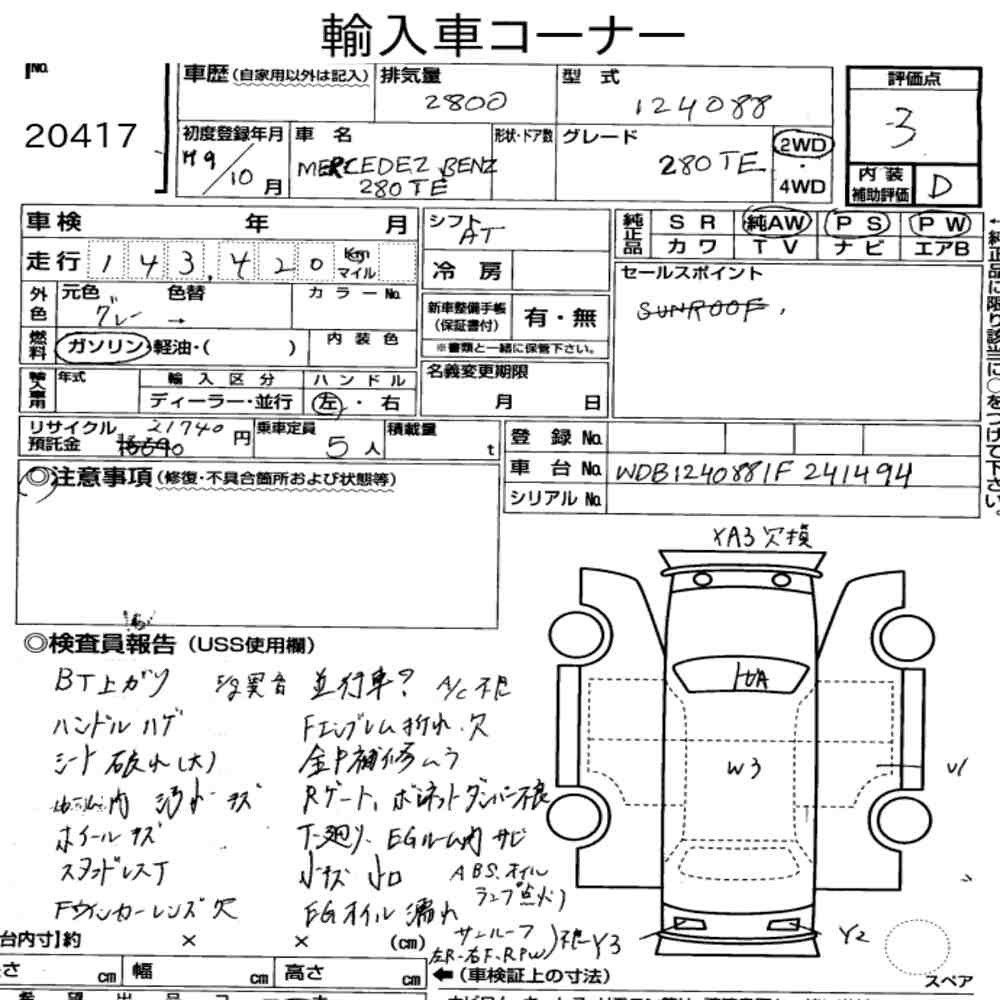 輸入車コーナー
No.
20417
車歴(自家用以外は記入)
排気量
2800
型 式
124088
評価点
3
初度登録年月
H9/10月
車 名
MERCEDEZ BENZ
280TE
形状・ドア数
グレード
280TE
2WD
・
4WD
内装
補助評価
D
車検 年 月
シフト
AT
純正品
SR 純AW PS PW
カワ TV ナビ エアB
走行 143,420 Km マイル
冷房
セールスポイント
SUNROOF.
外色
元色 グレー → 色替
カラーNo.
新車整備手帳
(保証書付)
有・無
※書類と一緒に保管下さい。
燃料
ガソリン・軽油・( )
内装色
輸入車用
年式
輸入区分
ディーラー・並行
ハンドル
左・右
名義変更期限
月 日
←純正品に限り該当に○をつけて下さい。
リサイクル
預託金
21740 円
乗車定員
5人
積載量
t
登録No.
車台No. WDB1240881F241494
シリアルNo.
◎注意事項(修復・不具合箇所および状態等)
XA3 欠損
◎検査員報告(USS使用欄)
BT上がり 並行車? A/C不良
ハンドルハゲ Fエンブレム折れ.欠
シート破れ(大) 補修ムラ
Rゲート、ボンネットダンパー不良
ホイールキズ T廻り、EGルーム内サビ
スタッドレスT 小キズ 小凹 ABS.オイル
ランプ点火)
Fウインカーレンズ欠 EGオイル漏れ
サンルーフ
左R-右F.R.PW)不良
W3
U1
Y3
Y2
台内寸】約 × × (cm)
←(車検証上の寸法)
スペア
さ cm 幅 cm 高さ cm